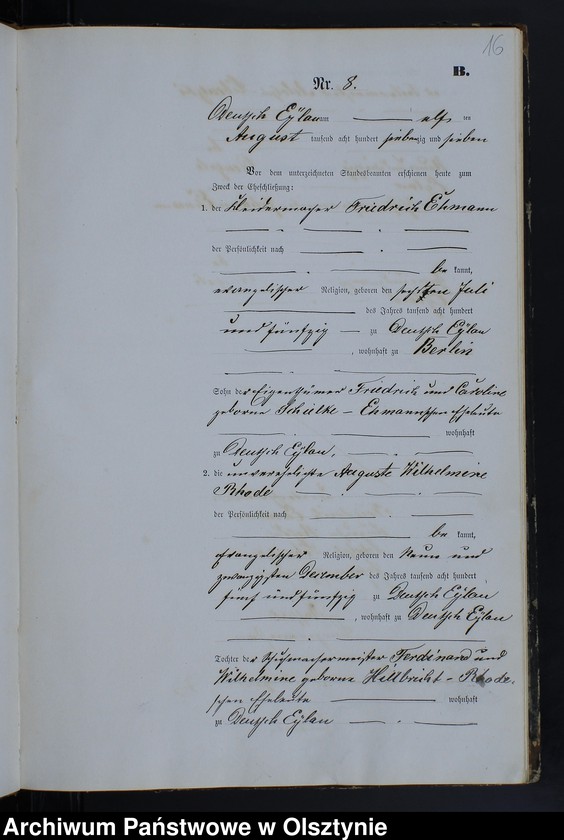 16
B.
Nr. 8.
Deutsch Eylau am elf ten
August tausend acht hundert siebenzig und sieben
Vor dem unterzeichneten Standesbeamten erschienen heute zum
Zweck der Eheschließung:
1. der Kleidermacher Friedrich Ehmann
der Persönlichkeit nach
be kannt,
evangelischer Religion, geboren den sechsten Juli
des Jahres tausend acht hundert
und fünfzig zu Deutsch Eylau
, wohnhaft zu Berlin
Sohn der Eigenthümer Friedrich und Caroline
geborne Schielke - Ehmannschen Eheleute
wohnhaft
zu Deutsch Eylau.
2. die unverehelichte Auguste Wilhelmine
Rhode
der Persönlichkeit nach
be kannt,
evangelischer Religion, geboren den neun und
zwanzigsten Dezember des Jahres tausend acht hundert
fünf und fünfzig zu Deutsch Eylau
, wohnhaft zu Deutsch Eylau
Tochter der Schuhmachermeister Ferdinand und
Wilhelmine geborne Hillbricht - Rhode-
schen Eheleute wohnhaft
zu Deutsch Eylau
Archiwum Państwowe w Olsztynie